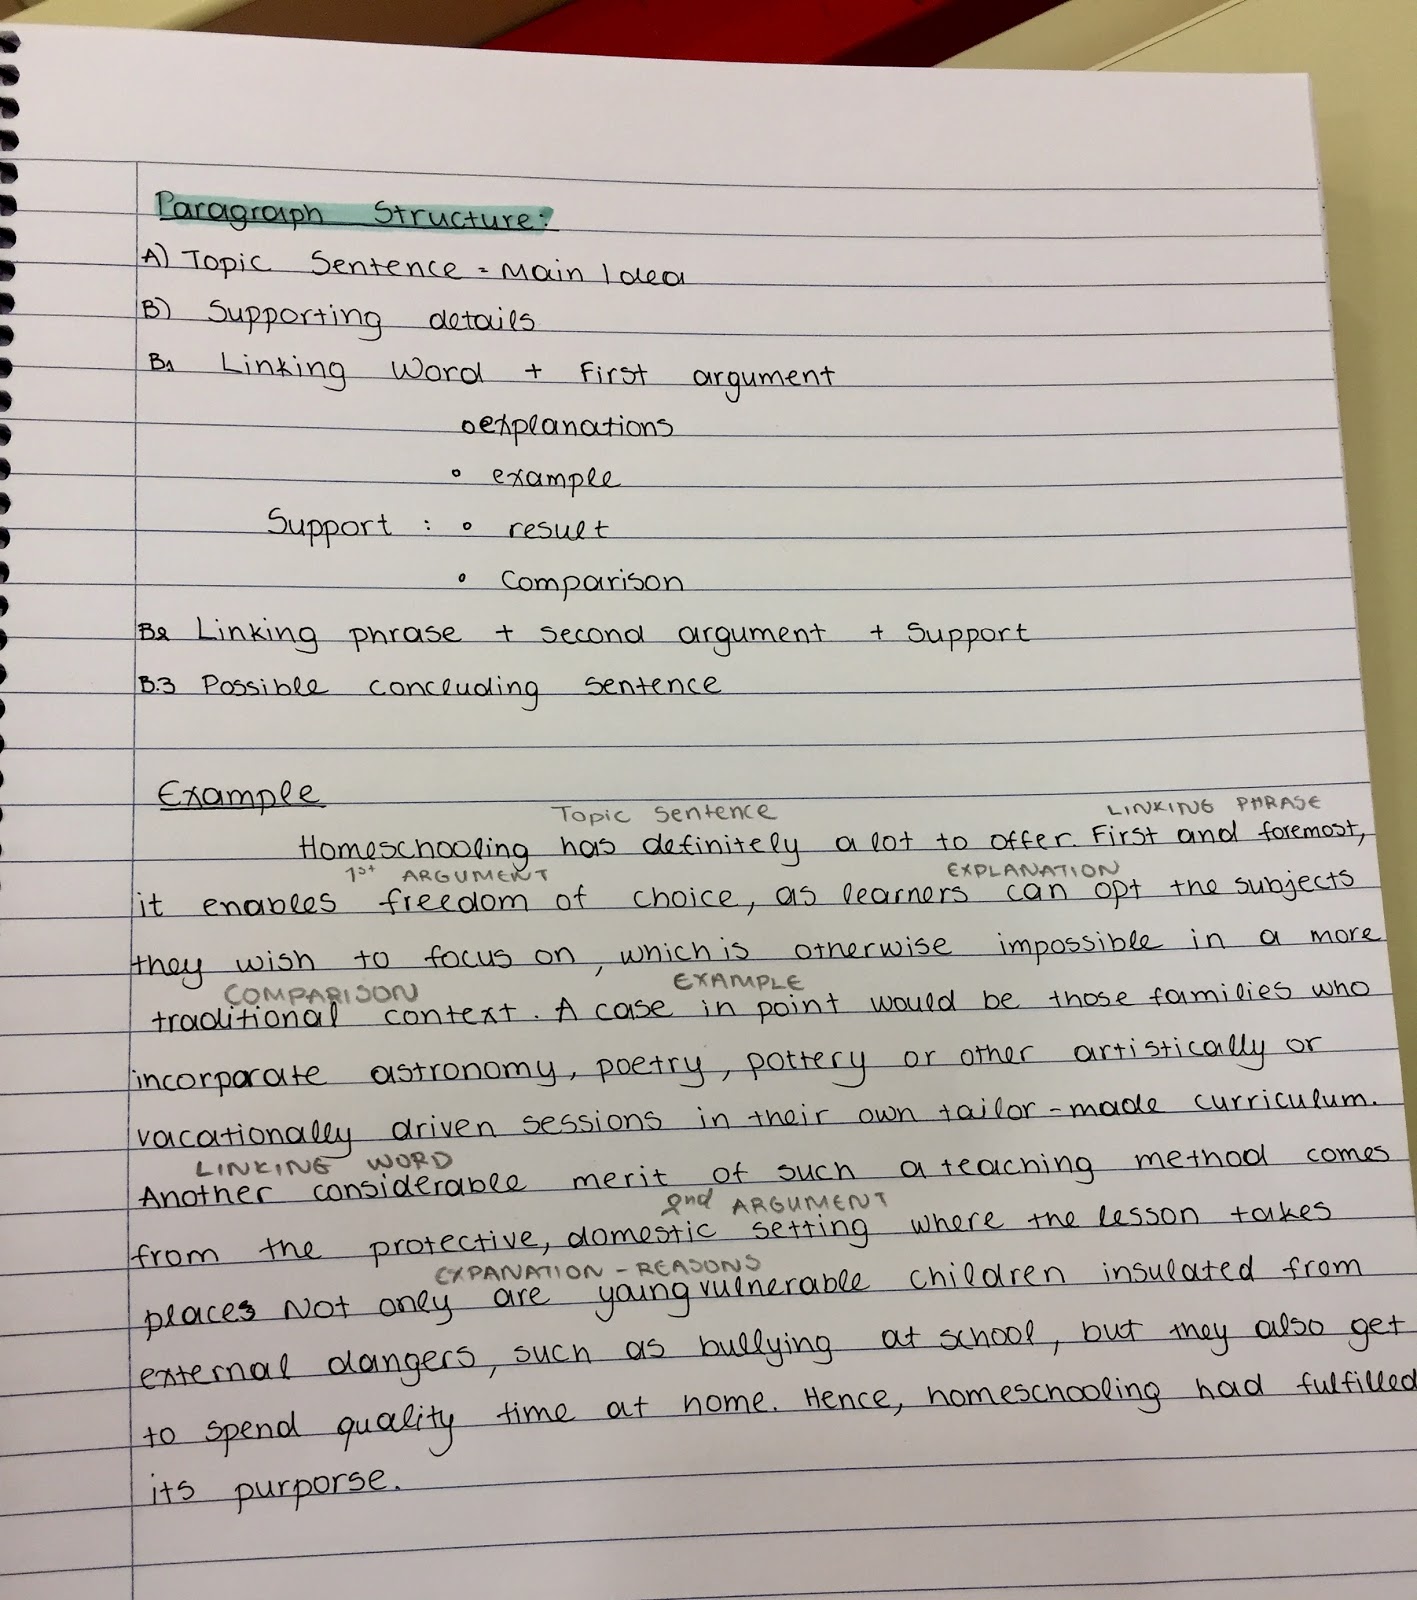 Paragraph Structure:
A) Topic Sentence = Main Idea
B) Supporting details
B1 Linking Word + First argument
o explanations
o example
Support : o result
o Comparison
B2 Linking phrase + second argument + Support
B.3 Possible concluding sentence
Example
Topic Sentence LINKING PHRASE
Homeschooling has definitely a lot to offer. First and foremost,
1st ARGUMENT EXPLANATION
it enables freedom of choice, as learners can opt the subjects
they wish to focus on, which is otherwise impossible in a more
COMPARISON EXAMPLE
traditional context. A case in point would be those families who
incorporate astronomy, poetry, pottery or other artistically or
vacationally driven sessions in their own tailor-made curriculum.
LINKING WORD
Another considerable merit of such a teaching method comes
2nd ARGUMENT
from the protective, domestic setting where the lesson takes
EXPANATION - REASONS
places Not only are young vulnerable children insulated from
external dangers, such as bullying at school, but they also get
to spend quality time at home. Hence, homeschooling had fulfilled
its purporse.